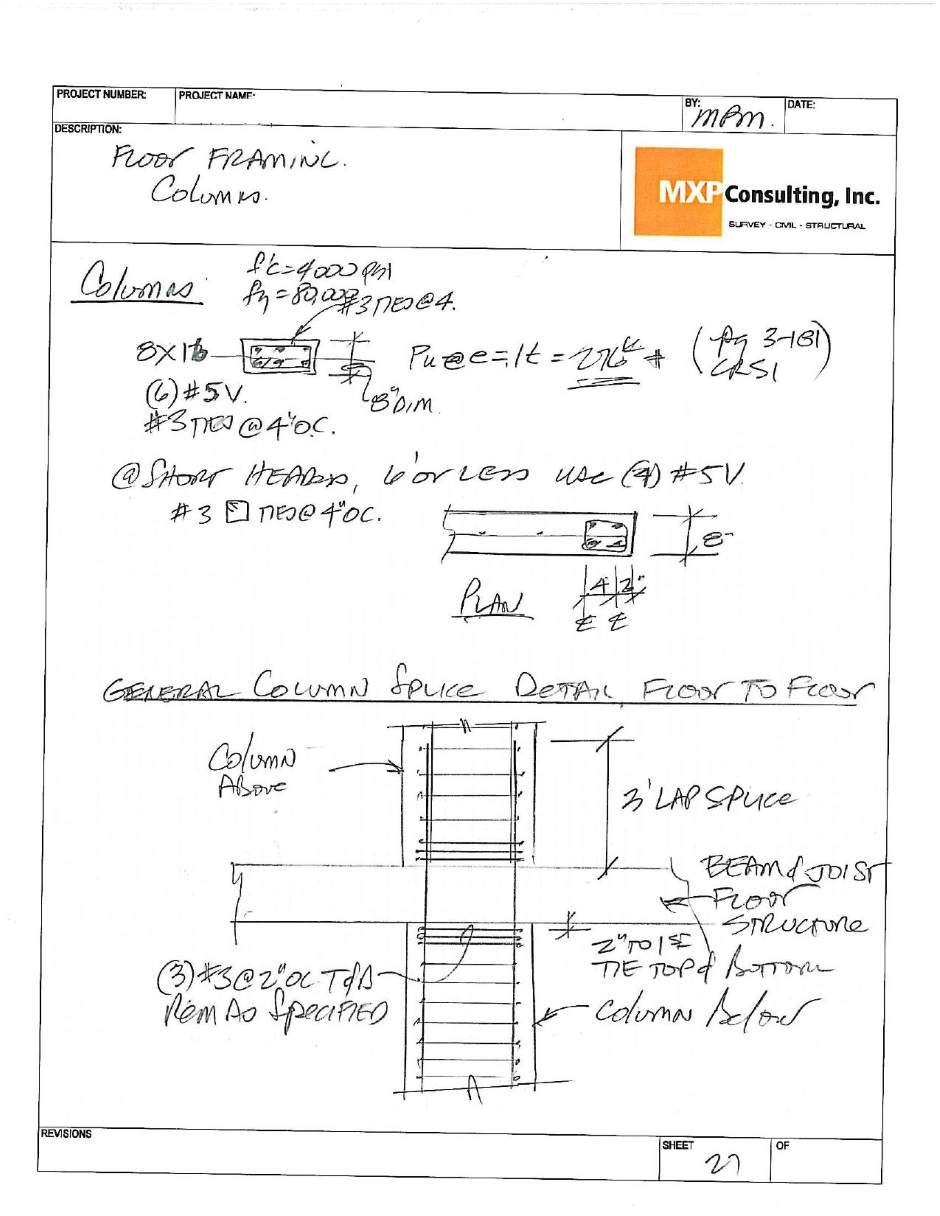 PROJECT NUMBER:
PROJECT NAME:
BY:
mPm.
DATE:
DESCRIPTION:
FLOOR FRAMING.
Columns.
MXP Consulting, Inc.
SURVEY - CIVIL - STRUCTURAL
Columns
f'c=4000 psi
fy=80,000
#3 TIES@4.
8X16
8" DIM.
(6)#5V.
#3 TIES @4"O.C.
Pu@e=.1t = 276k
(Pg 3-181)
CRSI
@ SHORT HEADERS, 6' or LESS USE (4) #5V.
#3 TIES@4"OC.
8"
PLAN
4" 2"
GENERAL COLUMN SPLICE DETAIL FLOOR TO FLOOR
Column
Above
3' LAP SPLICE
BEAM & JOIST
FLOOR
STRUCTURE
2" TO 1ST
TIE TOP & BOTTOM
(3)#3@2"OC T&B
Rem As SPECIFIED
Column Below
REVISIONS
SHEET
27
OF